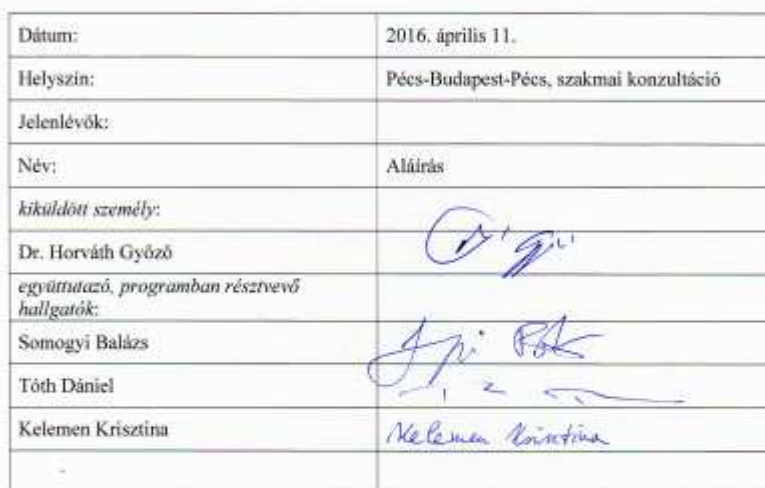 Dátum: 2016. április 11.
Helyszín: Pécs-Budapest-Pécs, szakmai konzultáció
Jelenlévők:
Név: Aláírás
kiküldött személy:
Dr. Horváth Győző
együttutazó, programban résztvevő
hallgatók:
Somogyi Balázs
Tóth Dániel
Kelemen Krisztina Kelemen Krisztina